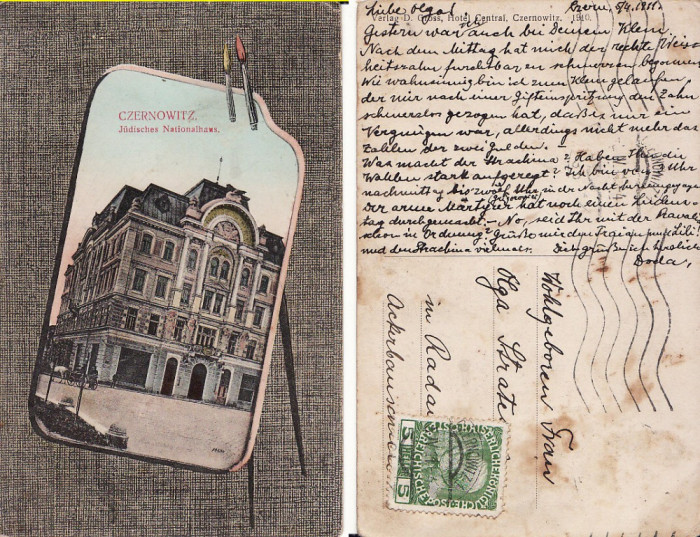 CZERNOWITZ.
Jüdisches Nationalhaus.
Verlag D. Gross, Hotel Central, Czernowitz. 1910.
Liebe Olga! Czern. 5/4. 1911.
Gestern war auch bei Deinem Klein.
Nach dem Mittag hat mich der rechte Weis-
heitszahn furchtbar zu schmerzen begonnen.
Wie wahnsinnig bin ich zum Klein gelaufen,
der mir nach einer Gifteinspritzung den Zahn
schmerzlos gezogen hat, daß es mir ein
Vergnügen war, allerdings nicht mehr das
Zahlen der zwei Gulden.
Was macht der Strachina? Haben Ihn die
Wahlen stark aufgeregt? Ich bin von Uhr
nachmittag bis zwölf Uhr in der Nacht
Der arme Märtyrer hat noch einen Leidens-
tag durchgemacht. No, seid Ihr mit der
in Ordnung? Grüße mir
und den Strachina vielmals. Dich grüßt herzlich
Dora,
Wohlgeboren Frau
Olga
in
Ackerbauschule
5